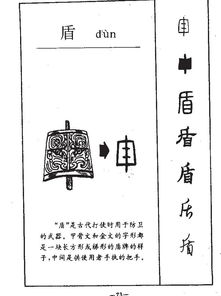 盾 dùn
盾
盾
盾
盾
"盾"是古代打仗时用于防卫
的武器。甲骨文和金文的字形都
是一块长方形或梯形的盾牌的样
子,中间是供使用者手执的把手。
—73—